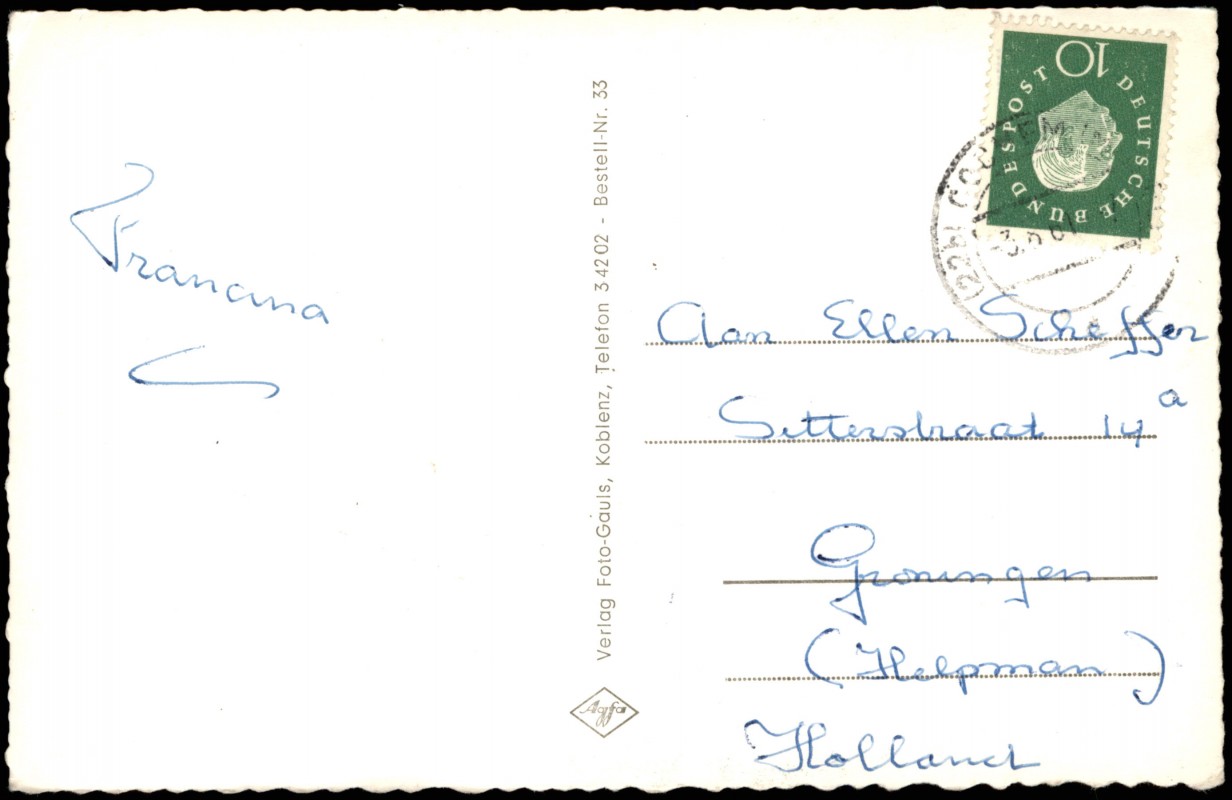 Francina
Verlag Foto-Gauls, Koblenz, Telefon 34202 - Bestell-Nr. 33
Agfa
10
DEUTSCHE BUNDESPOST
(22b) COCHEM
Aan Ellen Scheffer
Sitterstraat 14a
Groningen
(Helpman)
Holland